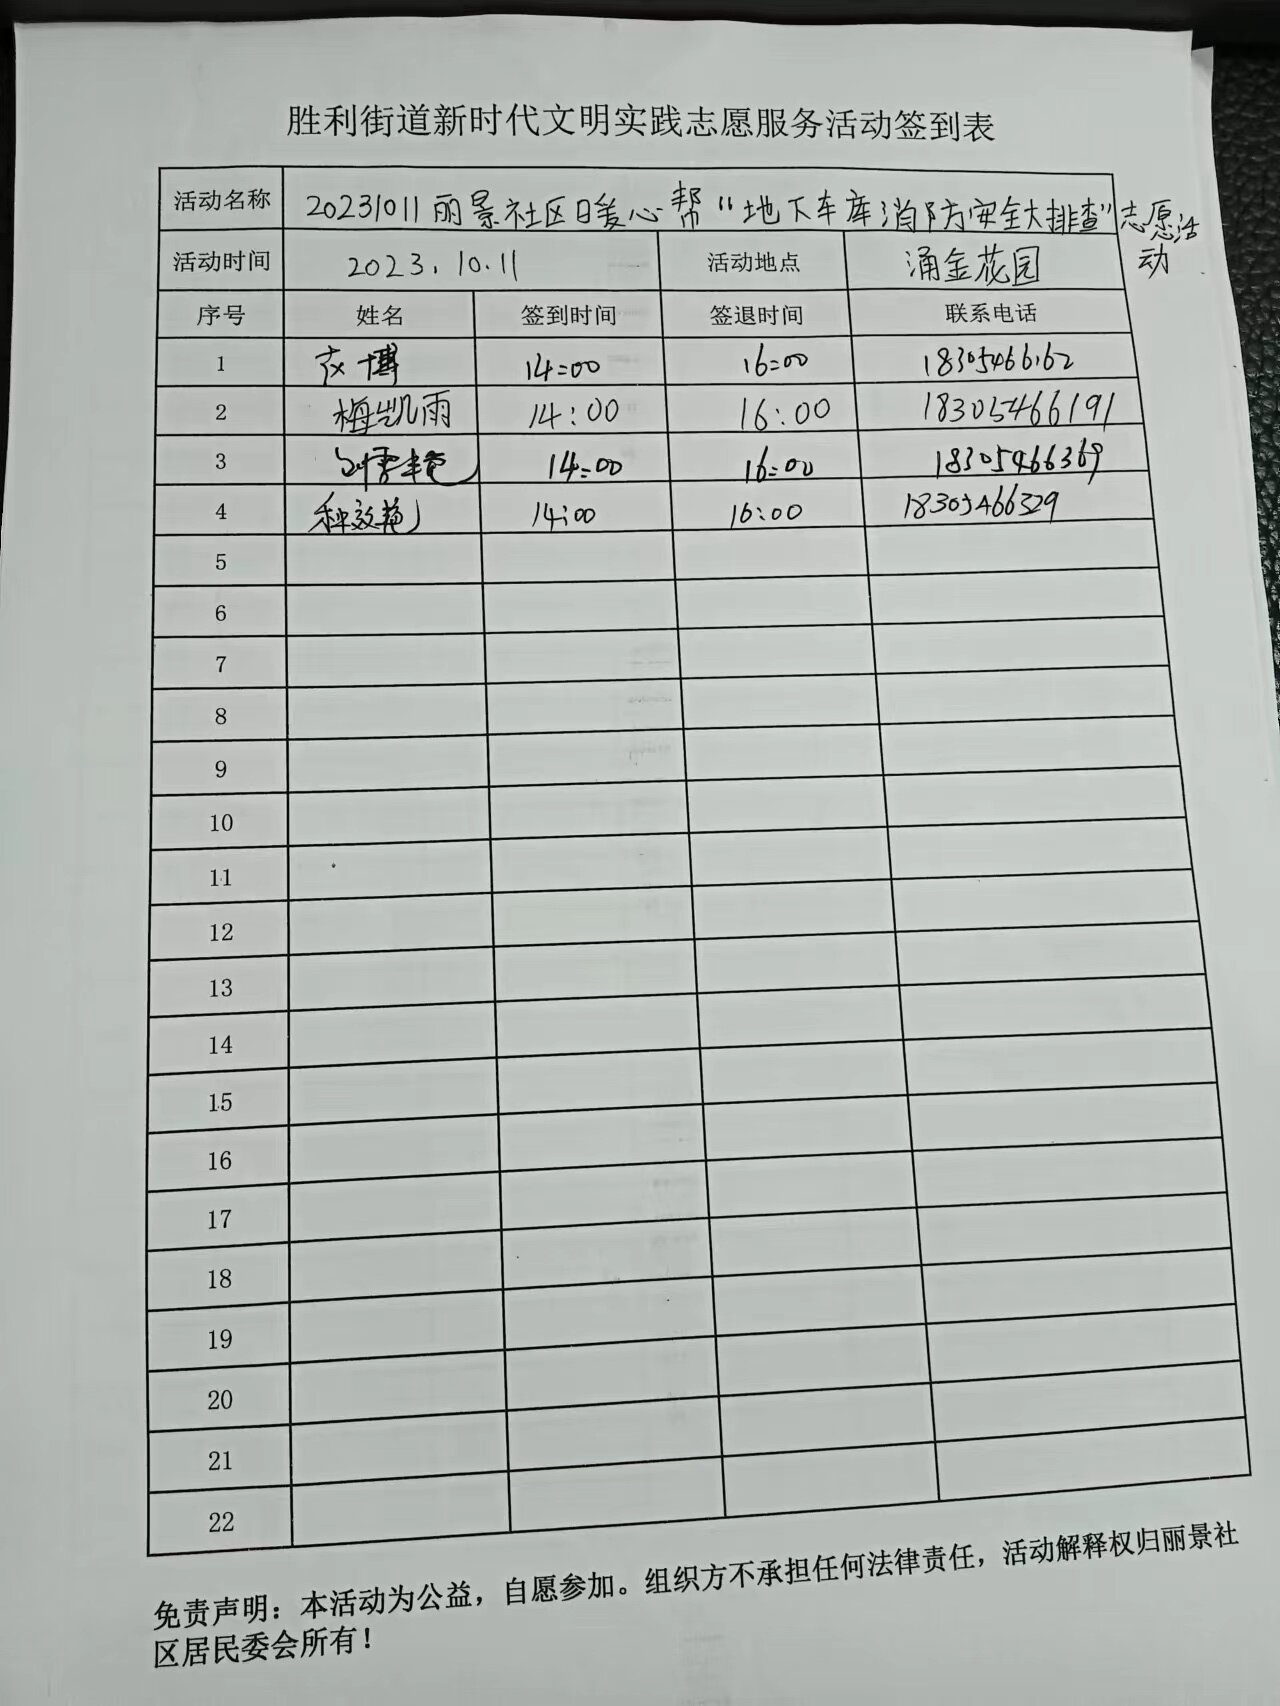 胜利街道新时代文明实践志愿服务活动签到表
活动名称 20231011丽景社区暖心帮“地下车库消防安全大排查”志愿活动
活动时间 2023.10.11 活动地点 涌金花园
序号 姓名 签到时间 签退时间 联系电话
1 博 14:00 16:00 18305466162
2 梅凯雨 14:00 16:00 18305466191
3 14:00 16:00 18305466369
4 种效艳 14:00 16:00 18305466329
5
6
7
8
9
10
11
12
13
14
15
16
17
18
19
20
21
22
免责声明：本活动为公益，自愿参加。组织方不承担任何法律责任，活动解释权归丽景社
区居民委会所有！